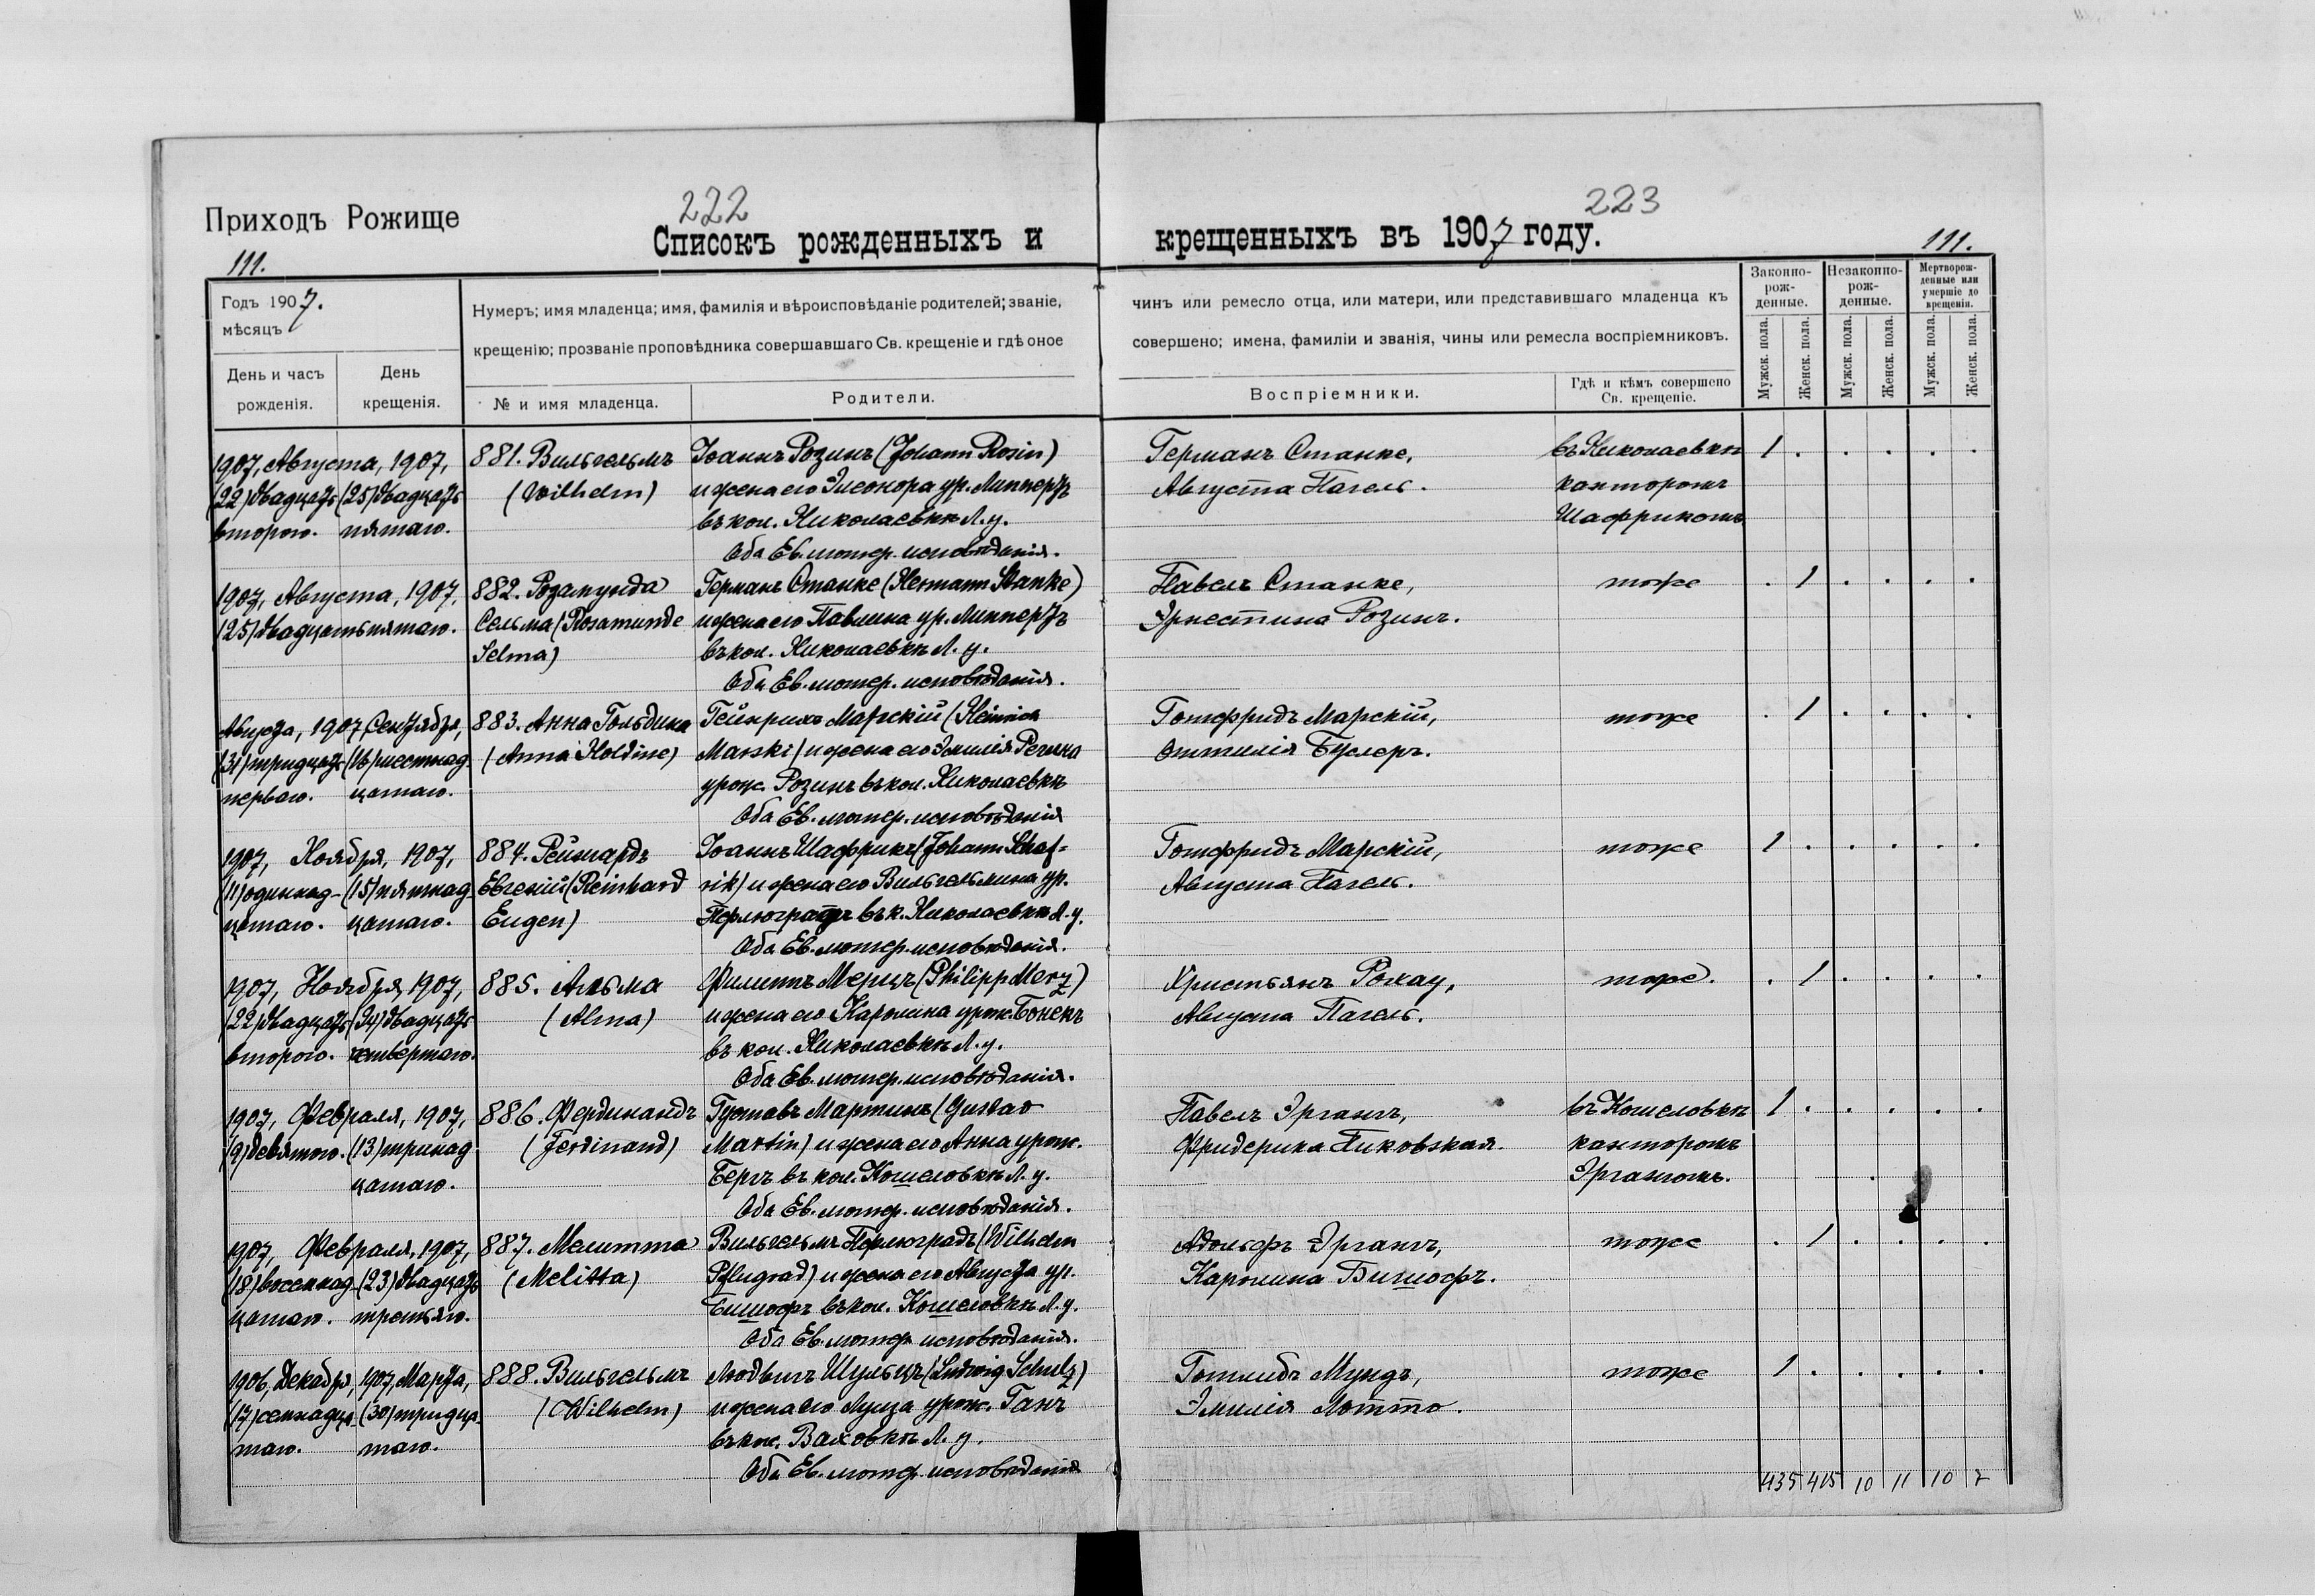 222
223
Приходъ Рожище
Списокъ рожденныхъ и крещенныхъ въ 1907 году.
111.
111.
Годъ 1907.
мѣсяцъ
Нумеръ; имя младенца; имя, фамилія и вѣроисповѣданіе родителей; званіе,
чинъ или ремесло отца, или матери, или представившаго младенца къ
крещенію; прозваніе проповѣдника совершавшаго Св. крещеніе и гдѣ оное
совершено; имена, фамиліи и званія, чины или ремесла воспріемниковъ.
Законно-
рож-
денные.
Незаконно-
рож-
денные.
Мертворож-
денные или
умершіе до
крещенія.
День и часъ
рожденія.
День
крещенія.
№ и имя младенца.
Родители.
Воспріемники.
Гдѣ и кѣмъ совершено
Св. крещеніе.
Мужск. пола.
Женск. пола.
Мужск. пола.
Женск. пола.
Мужск. пола.
Женск. пола.
1907, Августа, 1907, 881. Вильгельмъ Іоаннъ Розинъ (Johann Rosin) Германъ Станке, въ Николаевкѣ 1 . . . . .
(22) двадцать (25) двадцать (Wilhelm) и жена его Элеонора ур. Липпертъ Августа Пагель. канторомъ
второго. пятаго. въ кол. Николаевкѣ Л. у. Шаффрикомъ
Оба Ев. лютер. исповѣданія.
1907, Августа, 1907, 882. Розамунда Германъ Станке (Hermann Stanke) Павелъ Станке, тоже . 1 . . . .
(25) двадцать пятаго. Сельма (Rosamunde и жена его Павлина ур. Липпертъ Эрнестина Розинъ.
Selma) въ кол. Николаевкѣ Л. у.
Оба Ев. лютер. исповѣданія.
Августа, 1907 Сентября, 883. Анна Гольдина Гейнрихъ Марскій (Heinrich Готфридъ Марскій, тоже . 1 . . . .
(31) тридцать (16) шестнад- (Anna Holdine) Marski) и жена его Эмилія Регина Оттилія Буслеръ.
перваго. цатаго. урож. Розинъ въ кол. Николаевкѣ
Оба Ев. лютер. исповѣданія
1907, Ноября, 1907, 884. Рейнгардъ Іоаннъ Шаффрикъ (Johann Schaf- Готфридъ Марскій, тоже 1 . . . . .
(11) одиннад- (15) пятнад- Евгеній (Reinhard rik) и жена его Вильгельмина ур. Августа Пагель.
цатаго. цатаго. Eugen) Пфлюградтъ въ к. Николаевкѣ Л. у.
Оба Ев. лютер. исповѣданія.
1907, Ноября, 1907, 885. Альма Филиппъ Мерцъ (Philipp Merz) Христьянъ Рокау, тоже. . 1 . . . .
(22) двадцать (24) двадцать (Alma) и жена его Каролина урож. Бонекъ Августа Пагель.
второго. четвертаго. въ кол. Николаевкѣ Л. у.
Оба Ев. лютер. исповѣданія.
1907, Февраля, 1907, 886. Фердинандъ Густавъ Мартинъ (Gustav Павелъ Эргангъ, въ Кошеловкѣ 1 . . . . .
(9) девятого. (13) тринад- (Ferdinand) Martin) и жена его Анна урож. Фридерика Пиковская. канторомъ
цатаго. Бергъ въ кол. Кошеловкѣ Л. у. Эргангомъ.
Оба Ев. лютер. исповѣданія.
1907, Февраля, 1907, 887. Мелитта Вильгельмъ Пфлюградъ (Wilhelm Адольфъ Эргангъ, тоже . 1 . . . .
(18) восемнад- (23) двадцать (Melitta) Pflugrad) и жена его Августа ур. Каролина Бишофъ.
цатаго. третьяго. Бишофъ въ кол. Кошеловкѣ Л. у.
Оба Ев. лютер. исповѣданія.
1906, Декабря, 1907, Марта, 888. Вильгельмъ Людвигъ Шульцъ (Ludwig Schulz) Готлибъ Мундъ, тоже 1 . . . . .
(17) семнадца- (30) тридца- (Wilhelm) и жена его Луиза урож. Ганъ Эмилія Лотто.
таго. таго. въ кол. Ваховкѣ Л. у.
Оба Ев. лютер. исповѣданія
435 415 10 11 10 7